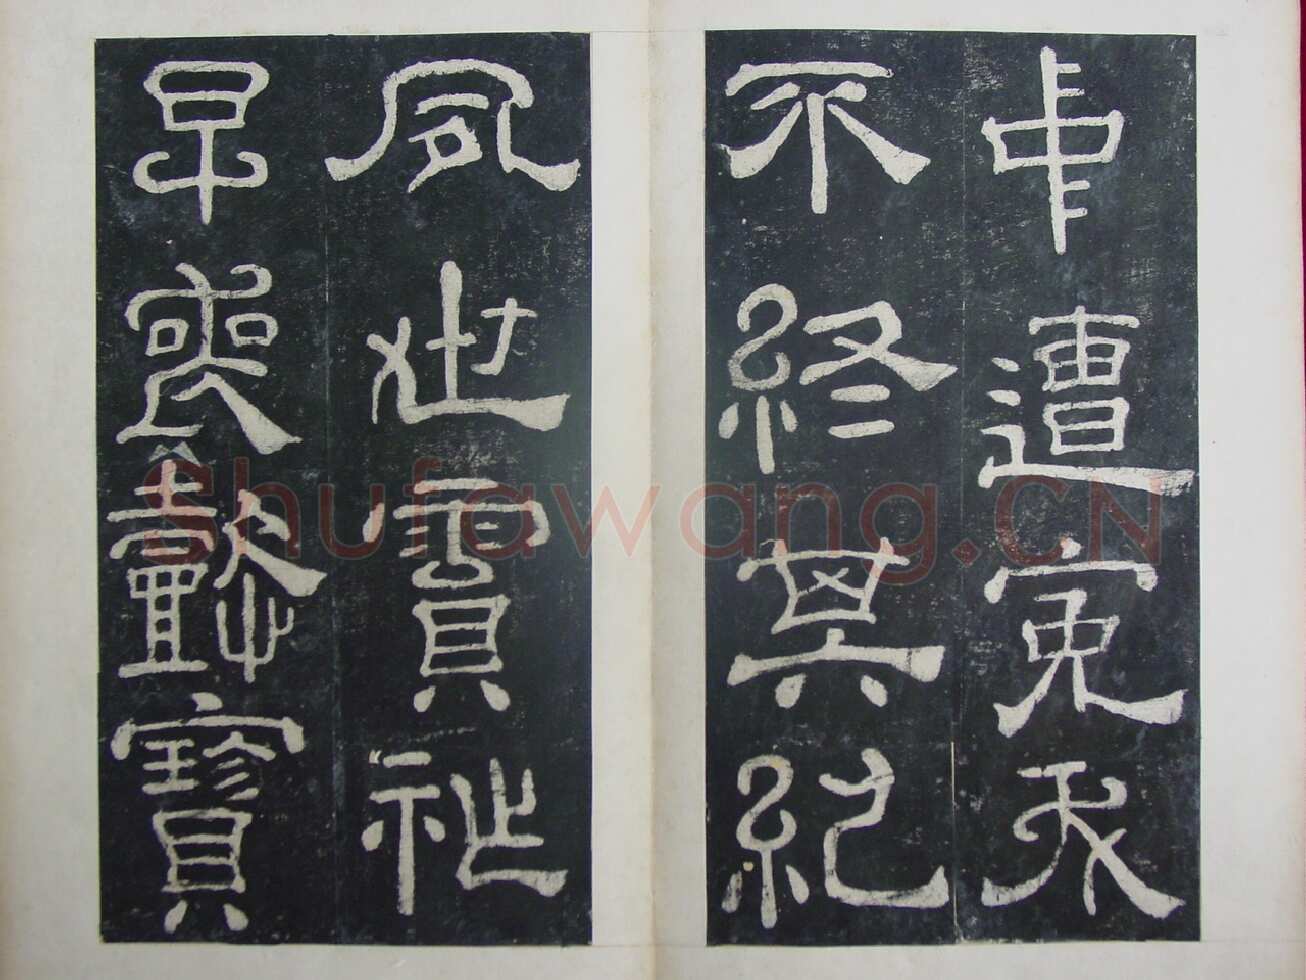 中遭冤夭
不終其紀
夙世霣祚
早喪懿寶
Shufawang.CN